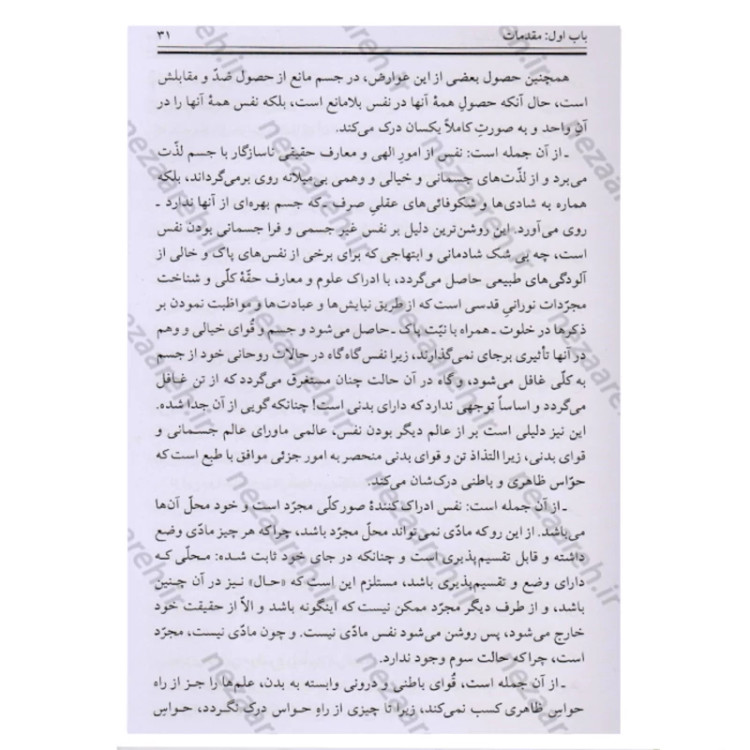 باب اول: مقدمات ۳۱
همچنین حصول بعضی از این عوارض، در جسم مانع از حصول ضدّ و مقابلش
است، حال آنکه حصولِ همهٔ آنها در نفس بلامانع است، بلکه نفس همهٔ آنها را در
آنِ واحد و به صورتِ کاملاً یکسان درک می‌کند.
ـ از آن جمله است: نفس از امورِ الهی و معارف حقیقی ناسازگار با جسم لذّت
می‌برد و از لذّت‌های جسمانی و خیالی و وهمی بی‌میلانه روی برمی‌گرداند، بلکه
هماره به شادی‌ها و شکوفائی‌های عقلیِ صرف ـ که جسم بهره‌ای از آنها ندارد ـ
روی می‌آورد. این روشن‌ترین دلیل بر نفس غیر جسمی و فرا جسمانی بودن نفس
است، چه بی شک شادمانی و ابتهاجی که برای برخی از نفس‌های پاک و خالی از
آلودگی‌های طبیعی حاصل می‌گردد، با ادراک علوم و معارف حقّهٔ کلّی و شناخت
مجرّدات نورانیِ قدسی است که از طریق نیایش‌ها و عبادت‌ها و مواظبت نمودن بر
ذکرها در خلوت ـ همراه با نیّت پاک ـ حاصل می‌شود و جسم و قُوای خیالی و وهم
در آنها تأثیری برجای نمی‌گذارند، زیرا نفس گاه گاه در حالات روحانی خود از جسم
به کلّی غافل می‌شود، و گاه در آن حالت چنان مستغرق می‌گردد که از تن غافل
می‌گردد و اساساً توجهی ندارد که دارای بدنی است! چنانکه گویی از آن جدا شده.
این نیز دلیلی است بر از عالم دیگر بودن نفس، عالمی ماورای عالم جسمانی و
قوای بدنی، زیرا التذاذ تن و قوای بدنی منحصر به امور جزئی موافق با طبع است که
حوّاس ظاهری و باطنی درک‌شان می‌کند.
ـ از آن جمله است: نفس ادراک کنندهٔ صورکلّی مجرّد است و خود محلّ آن‌ها
می‌باشد. از این رو که مادّی نمی‌تواند محلّ مجرّد باشد، چراکه هر چیز مادّی وضع
داشته و قابل تقسیم‌پذیری است و چنانکه در جای خود ثابت شده: محلّی که
دارای وضع و تقسیم‌پذیری باشد، مستلزم این است که «حال» نیز در آن چنین
باشد، و از طرف دیگر مجرّد ممکن نیست که اینگونه باشد و الاّ از حقیقت خود
خارج می‌شود، پس روشن می‌شود نفس مادّی نیست. و چون مادّی نیست، مجرّد
است، چراکه حالت سوم وجود ندارد.
ـ از آن جمله است، قُوای باطنی و درونی وابسته به بدن، علم‌ها را جز از راه
حواسِ ظاهری کسب نمی‌کند، زیرا تا چیزی از راهِ حواس درک نگردد، حواسِ